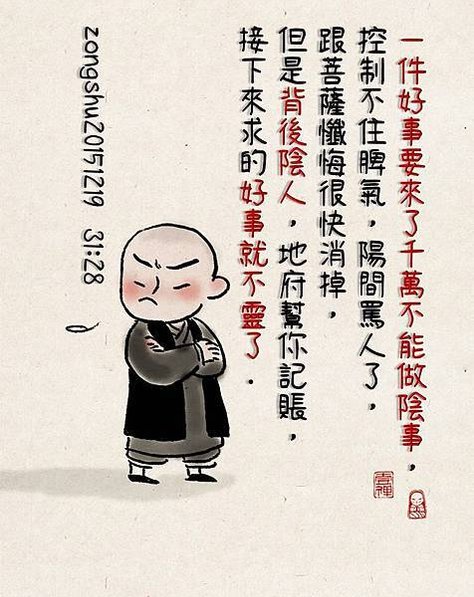 一件好事要來了千萬不能做陰事，
控制不住脾氣，陽間罵人了，
跟菩薩懺悔很快消掉，
但是背後陰人，地府幫你記賬，
接下來求的好事就不靈了．
zongshu20151219 31:28